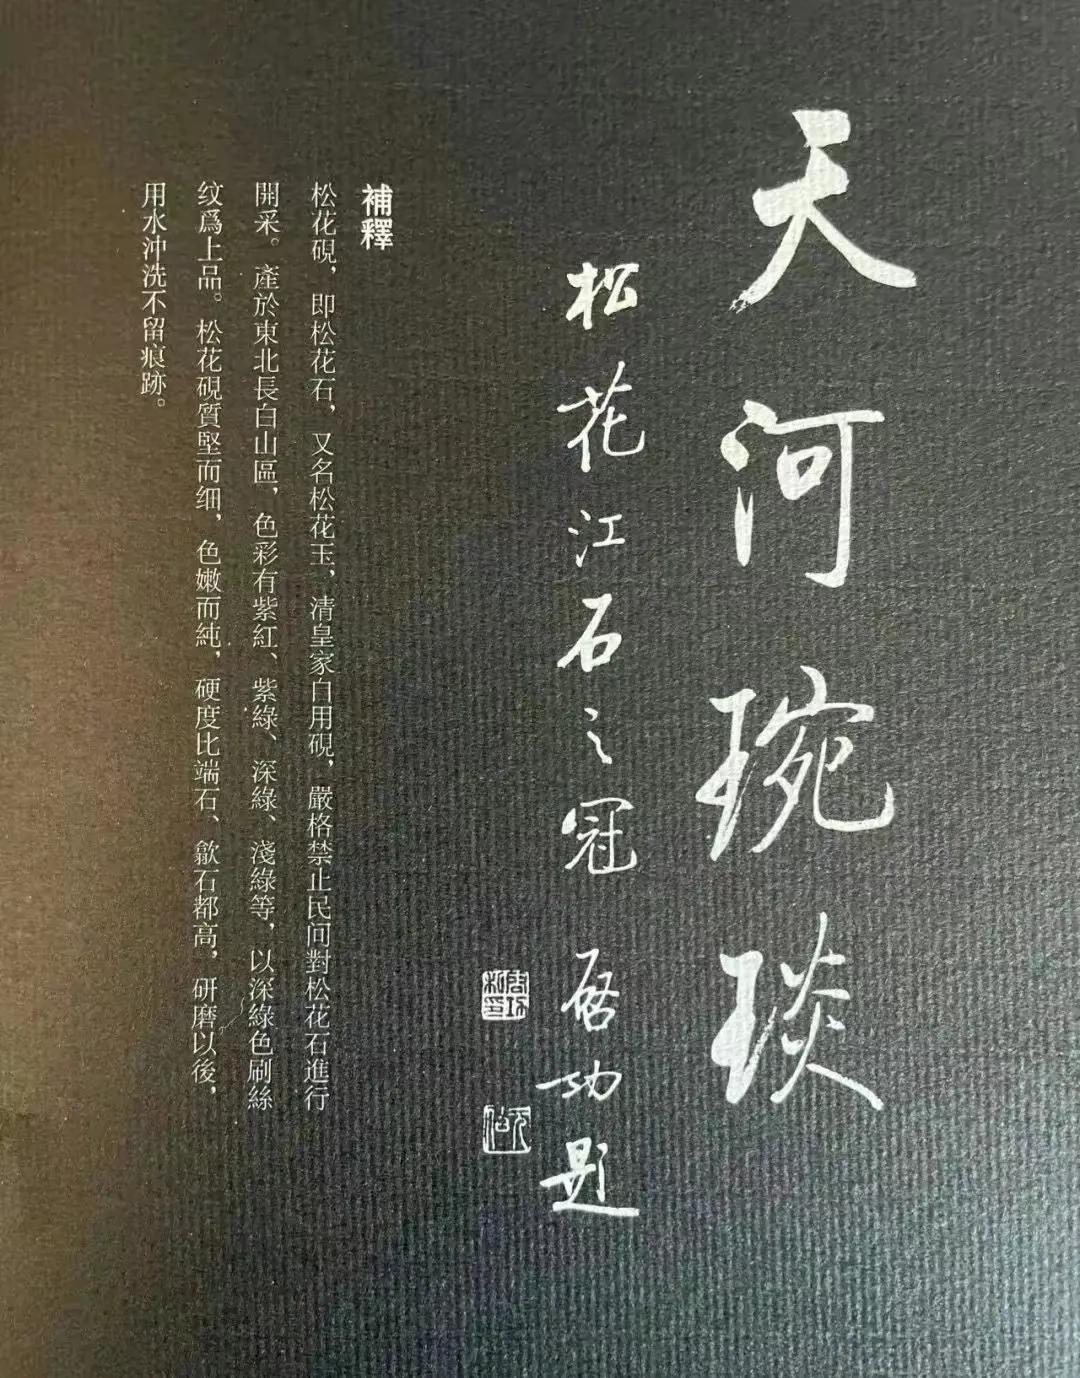 天河琬琰
松花江石之冠 启功題
補釋
松花硯，即松花石，又名松花玉，清皇家自用硯，嚴格禁止民间對松花石進行
開采。產於東北長白山區，色彩有紫紅、紫綠、深綠、淺綠等，以深綠色刷絲
纹爲上品。松花硯質堅而细，色嫩而純，硬度比端石、歙石都高，研磨以後，
用水沖洗不留痕跡。